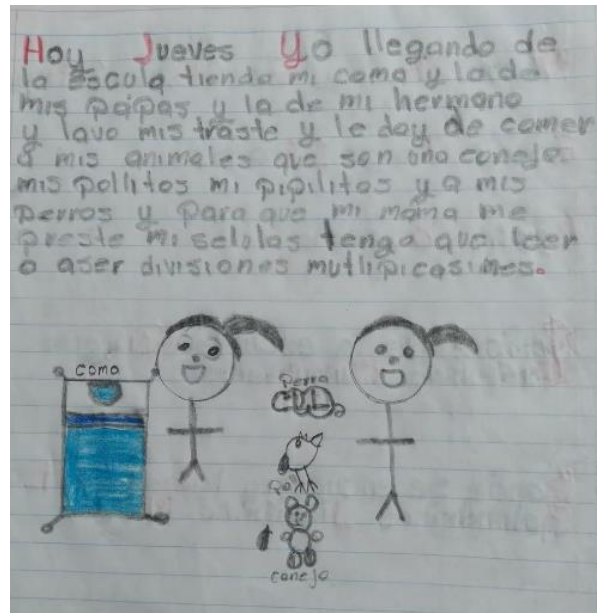 Hoy Jueves Yo llegando de
la Escula tiendo mi cama y la de
mis papas y la de mi hermano
y lavo mis traste y le doy de comer
a mis animales que son una conejo
mis pollitos mi pipilitos y a mis
perros y para que mi mama me
preste mi selolas tengo que leer
o aser divisiones mutlipicasimes.
cama
perro
conejo